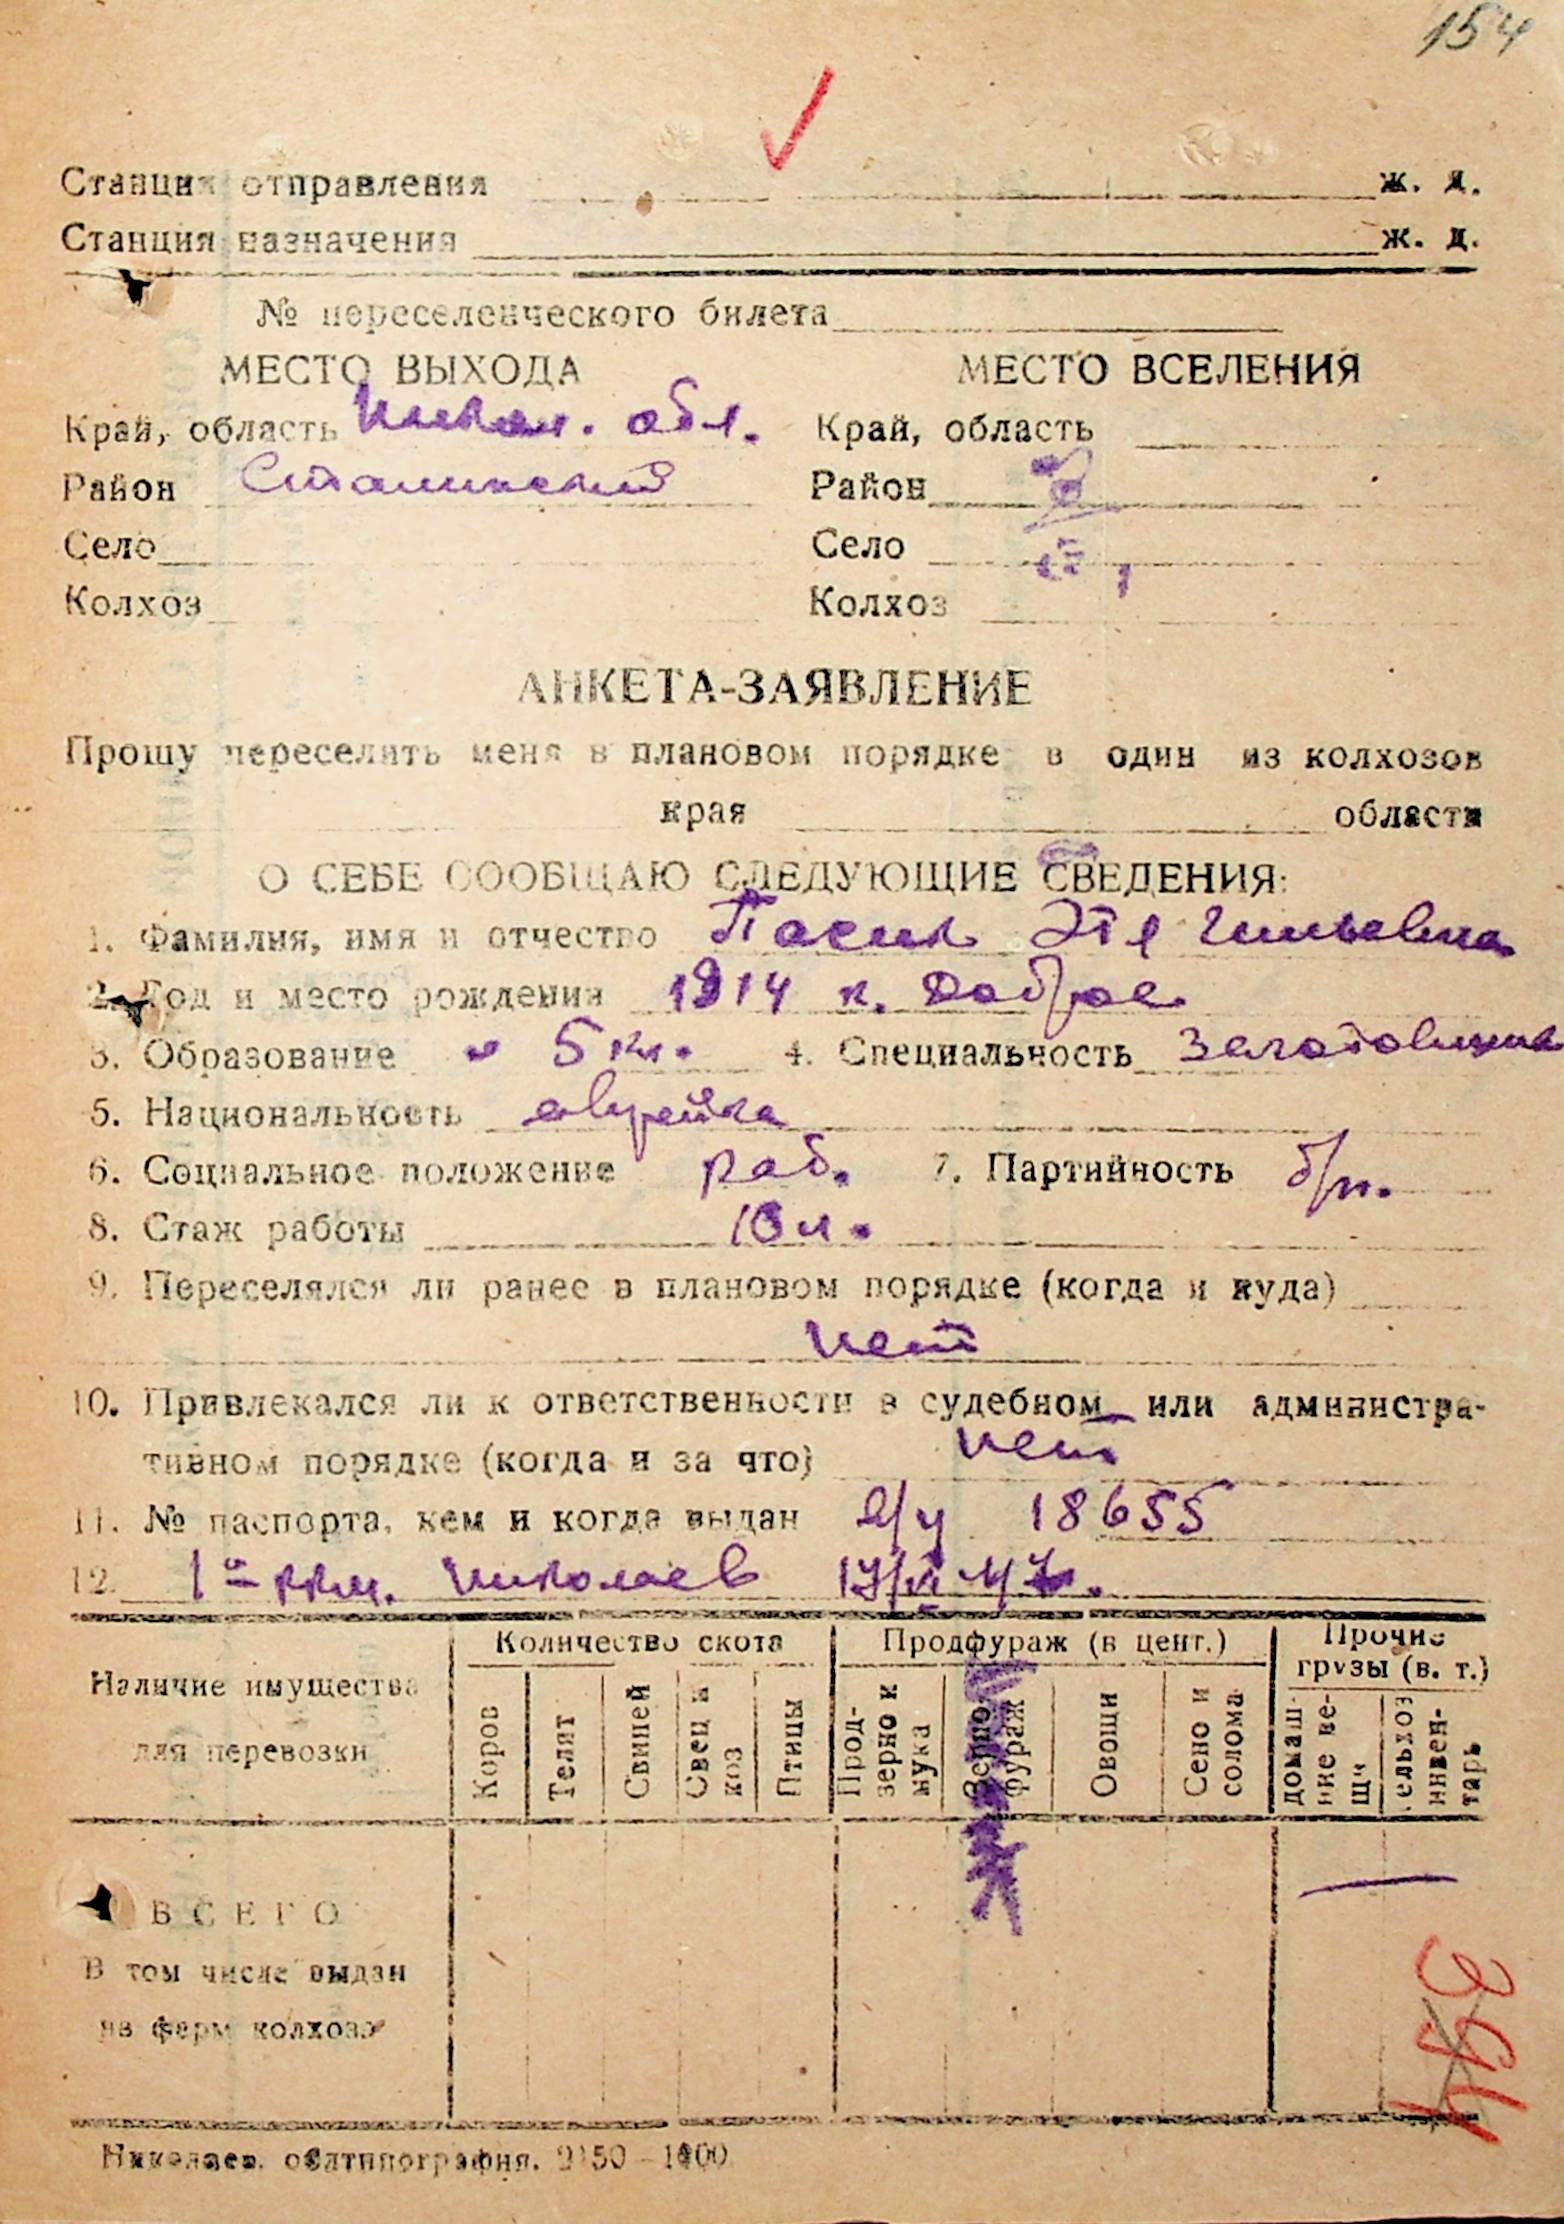 154
Станция отправления ж. д.
Станция назначения ж. д.
№ переселенческого билета
МЕСТО ВЫХОДА МЕСТО ВСЕЛЕНИЯ
Край, область Никол. обл. Край, область
Район Сталинский Район
Село Село
Колхоз Колхоз
АНКЕТА-ЗАЯВЛЕНИЕ
Прошу переселить меня в плановом порядке в один из колхозов
края области
О СЕБЕ СООБЩАЮ СЛЕДУЮЩИЕ СВЕДЕНИЯ:
1. Фамилия, имя и отчество Пасик Этя
2. Год и место рождения 1914 к. Доброе
3. Образование 5 кл. 4. Специальность
5. Национальность еврейка
6. Социальное положение раб. 7. Партийность б/п.
8. Стаж работы 10 л.
9. Переселялся ли ранее в плановом порядке (когда и куда)
нет
10. Привлекался ли к ответственности в судебном или администра-
тивном порядке (когда и за что) нет
11. № паспорта, кем и когда выдан 18655
12. Николаев
Наличие имущества для перевозки Количество скота Продфураж (в цент.) Прочие грузы (в. т.)
Коров Телят Свиней Овец и коз Птицы Прод-зерно и мука Зерно-фураж Овощи Сено и солома домаш-ние ве-щи сельхоз инвен-тарь
ВСЕГО
В том числе выдан
из ферм колхоза
394
Николаев. облтипография. 2150—1000